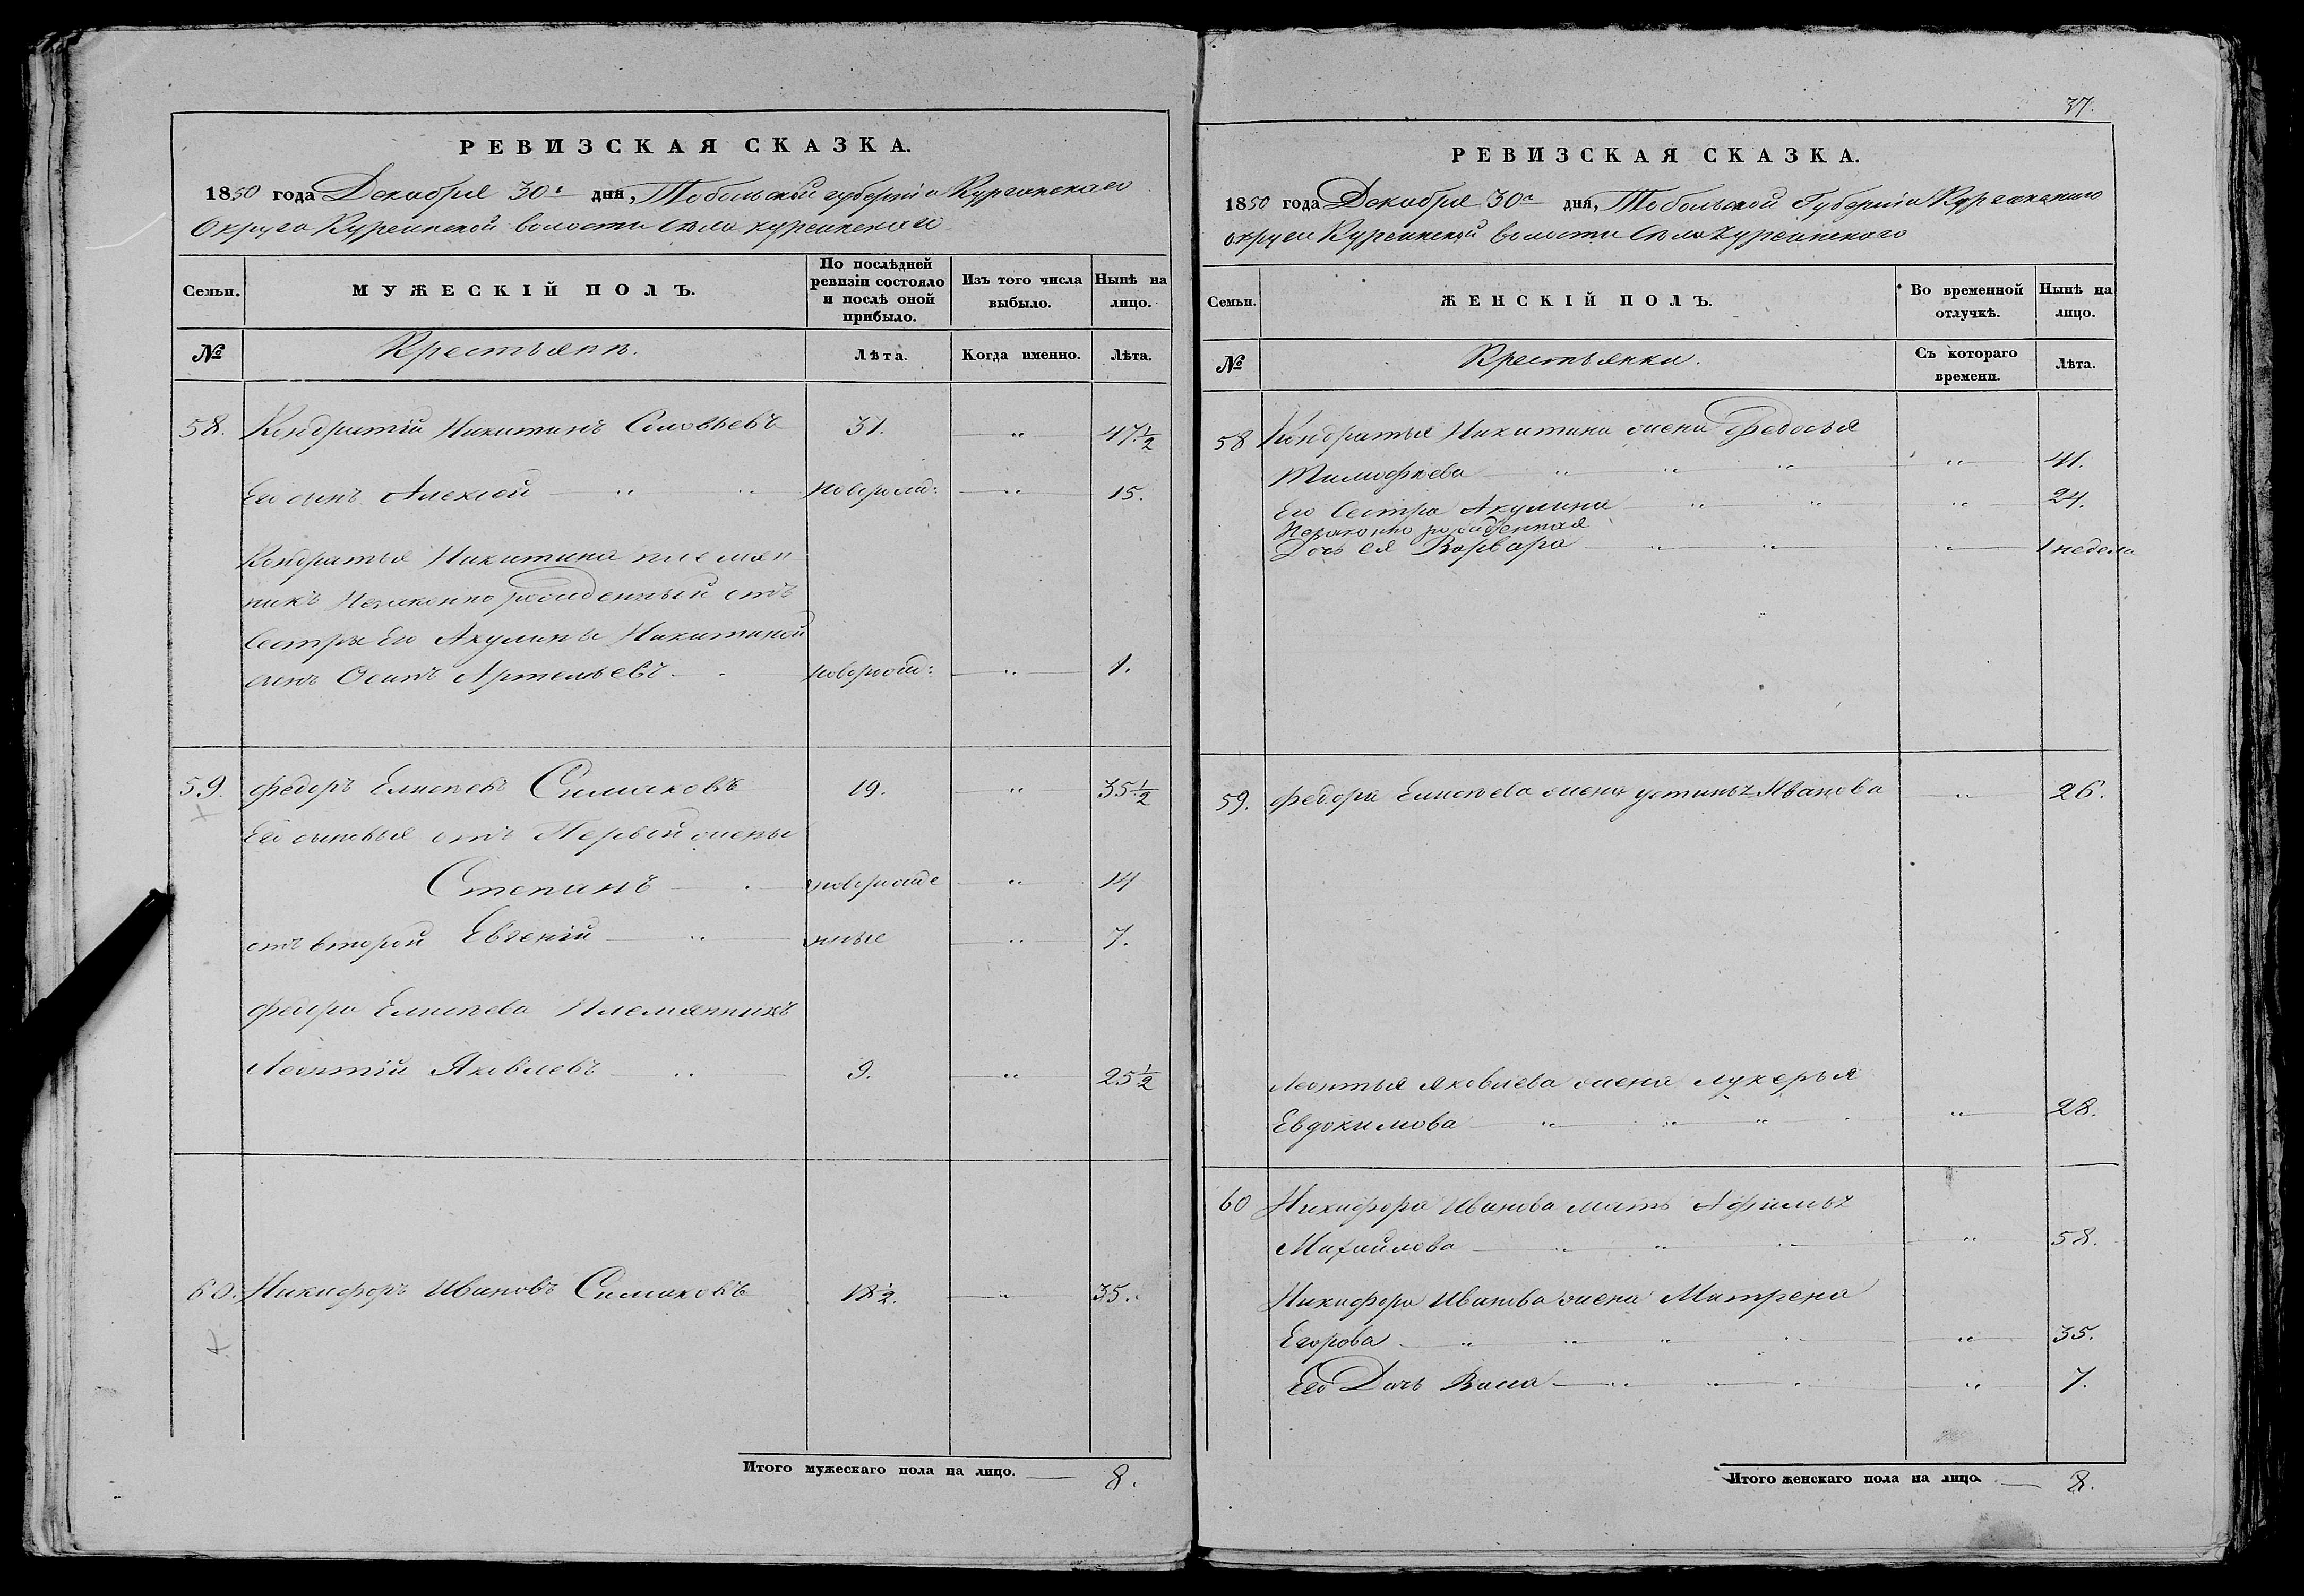 РЕВИЗСКАЯ СКАЗКА.
1850 года Декабря 30го дня, Тобольской губерніи Курганскаго
Округа Куреинской волости Села куреинскаго
Семьи.
МУЖЕСКІЙ ПОЛЪ.
По послѣдней
ревизіи состояло
и послѣ оной
прибыло.
Изъ того числа
выбыло.
Нынѣ на
лицо.
№
Крестьянъ.
Лѣта.
Когда именно.
Лѣта.
58. Кондратій Никитинъ Соловьевъ 31. „ 47½
Его сынъ Алексѣй „ „ новорожд: „ 15.
Кондратья Никитина племян
никъ Незаконно рожденный отъ
Сестры Его Акулины Никитиной
сынъ Осипъ Артемьевъ новорожд: „ 1.
59. Федоръ Елисѣевъ Симаковъ 19. „ 35½
Его сыновья отъ Первой жены
Степанъ новорожде „ 14
отъ второй Евгеній „ нные „ 7.
Федора Елисѣева Племянникъ
Леонтій Яковлевъ „ 9. „ 25½
60. Никифоръ Ивановъ Симаковъ 18½. „ 35.
Итого мужескаго пола на лицо. 8.
37.
РЕВИЗСКАЯ СКАЗКА.
1850 года Декабря 30го дня, Тобольской Губерніи Курганскаго
округи Куреинской волости Села Куреинскаго
Семьи.
ЖЕНСКІЙ ПОЛЪ.
Во временной
отлучкѣ.
Нынѣ на
лицо.
№
Крестьянки.
Съ котораго
времени.
Лѣта.
58 Кондратья Никитина жена Федосья
Тимофѣева „ „ „ „ 41.
Его Сестра Акулина „ „ „ 24.
Незаконно рожденная
Дочь ея Варвара „ „ „ 1 недѣля
59. Федора Елисѣева жена устинья Иванова „ 26.
Леонтья яковлева жена лукерья
Евдокимова „ „ „ „ 28.
60 Никифора Иванова мать Афимья
Михайлова „ „ „ „ 58.
Никифора Иванова жена Матрена
Егорова „ „ „ „ 35.
Его Дочь Васса „ „ „ 7.
Итого женскаго пола на лицо. 8.